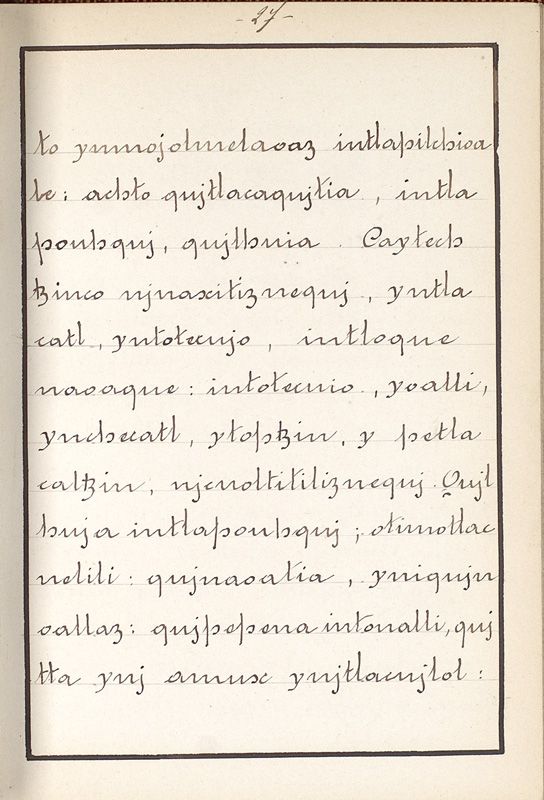 - 27 -
to ynmojolmelaoaz intlapilchioa
be: achto qujtlacaqujtia, intla
pouhquj, qujlhuia. Caytech
tzinco njnaxitiznequj, yntla
catl, yntotecujo, intloque
naoaque: intotecuio, yoalli,
ynehecatl, ytoptzin, y petla
caltzin, njcnoltitiliznequj. Qujl
huja intlapouhquj; otimotlac
nelili: qujnaoatia, yniqujn
oallaz: qujpepena intonalli, quj
tta ynj amux ynjtlacujlol: